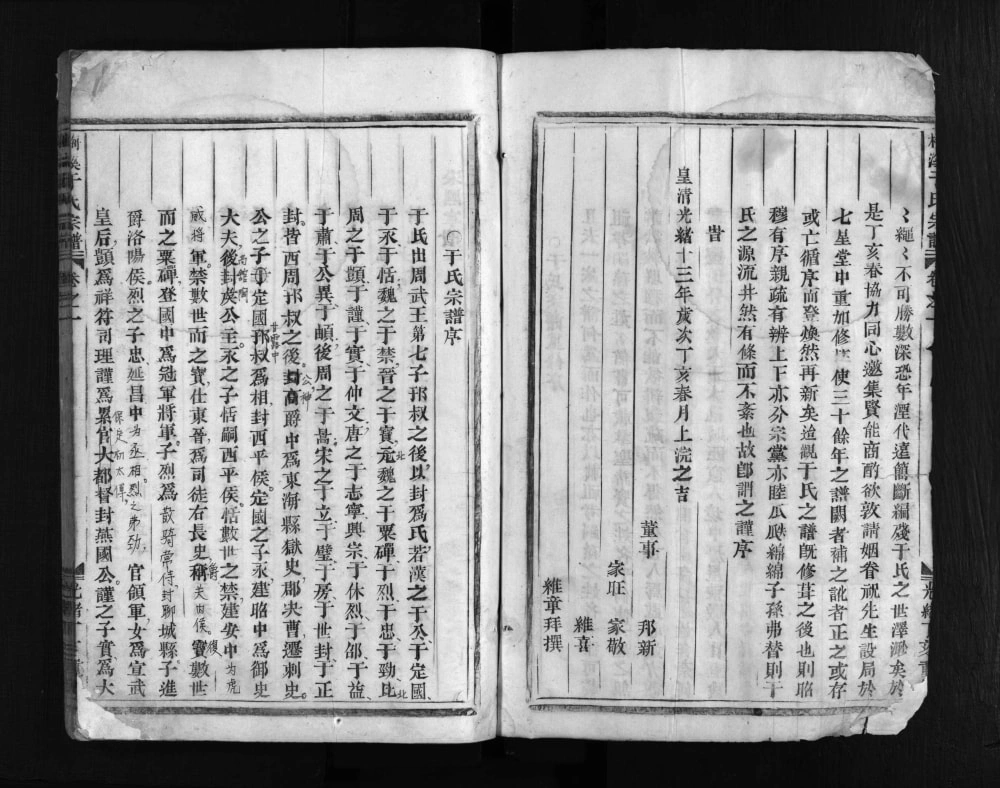 繩不司勝數深恐年湮代遠簡斷編殘于氏之世澤渺矣於
是丁亥春協力同心邀集賢能商酌欲敦請姻眷祝先生設局於
七星堂中重加修 使三十餘年之譜闕者補之訛者正之或存
或亡循序而登煥然再新矣逾觀于氏之譜既修葺之後也則昭
穆有序親疏有辨上下亦分宗黨亦睦瓜瓞綿綿子孫弗替則于
氏之源流井然有條而不紊也故卽謂之謹序
昔
皇清光緒十三年歲次丁亥春月上浣之吉
董事 邦新
家旺 家敬
維喜
維章拜撰
于氏宗譜 卷之一
〇于氏宗譜序
于氏出周武王第七子邘叔之後以封爲氏若漢之于公于定國
于永于恬魏之于禁晉之于寳元魏之于栗磾于烈于忠于勁北
周之于顗于謹于實于仲文唐之于志寧興宗于休烈于邵于益
于肅于公異于頔後周之于嵩宋之于立于璧于房于世封于正
封皆西周邘叔之後封商爵中爲東海縣獄史郡决曹遷刺史
公之子于定國邘叔爲相封西平侯定國之子永建昭中爲御史
甘露中
大夫後封虞公主永之子恬嗣西平侯恬數世之禁建安中為虎
威將軍禁數世而之寳仕東晉爲司徒右長史稱 关内侯 寳數世
而之栗磾登國中爲冠軍將軍子烈爲散騎常侍封聊城縣子進
爵洛陽侯烈之子忠延昌中为丞相烈之弟劲 官領軍女爲宣武
皇后顗爲祥符司理謹爲累官大都督封燕國公謹之子實爲大
于氏宗譜 卷之一